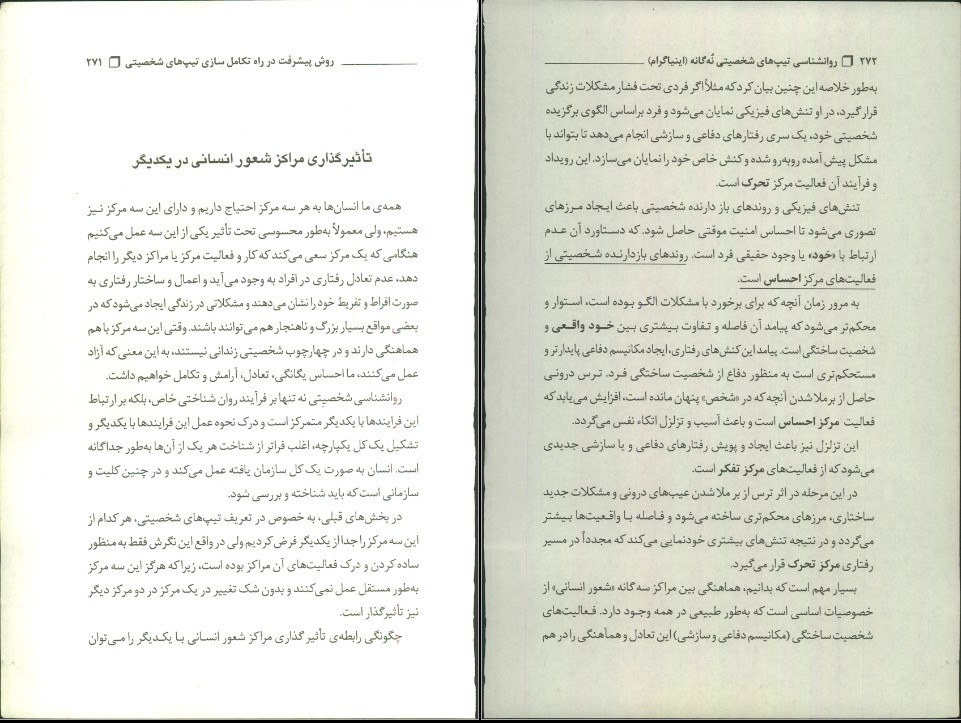 روش پیشرفت در راه تکامل سازی تیپ‌های شخصیتی ❒ ۲۷۱
تأثیرگذاری مراکز شعور انسانی در یکدیگر
همه‌ی ما انسان‌ها به هر سه مرکز احتیاج داریم و دارای این سه مرکز نیز
هستیم، ولی معمولاً به‌طور محسوسی تحت تأثیر یکی از این سه عمل می‌کنیم
هنگامی که یک مرکز سعی می‌کند که کار و فعالیت مرکز یا مراکز دیگر را انجام
دهد، عدم تعادل رفتاری در افراد به وجود می‌آید و اعمال و ساختار رفتاری به
صورت افراط و تفریط خود را نشان می‌دهند و مشکلاتی در زندگی ایجاد می‌شود که در
بعضی مواقع بسیار بزرگ و ناهنجار هم می‌توانند باشند. وقتی این سه مرکز با هم
هماهنگی دارند و در چهارچوب شخصیتی زندانی نیستند، به این معنی که آزاد
عمل می‌کنند، ما احساس یگانگی، تعادل، آرامش و تکامل خواهیم داشت.
روانشناسی شخصیتی نه تنها بر فرآیند روان شناختی خاص، بلکه بر ارتباط
این فرایندها با یکدیگر متمرکز است و درک نحوه عمل این فرایندها با یکدیگر و
تشکیل یک کل یکپارچه، اغلب فراتر از شناخت هر یک از آن‌ها به‌طور جداگانه
است. انسان به صورت یک کل سازمان یافته عمل می‌کند و در چنین کلیت و
سازمانی است که باید شناخته و بررسی شود.
در بخش‌های قبلی، به خصوص در تعریف تیپ‌های شخصیتی، هر کدام از
این سه مرکز را جدا از یکدیگر فرض کردیم ولی در واقع این نگرش فقط به منظور
ساده کردن و درک فعالیت‌های آن مراکز بوده است، زیرا که هرگز این سه مرکز
به‌طور مستقل عمل نمی‌کنند و بدون شک تغییر در یک مرکز در دو مرکز دیگر
نیز تأثیرگذار است.
چگونگی رابطه‌ی تأثیر گذاری مراکز شعور انسانی با یکدیگر را می‌توان
۲۷۲ ❒ روانشناسی تیپ‌های شخصیتی نُه‌گانه (اینیاگرام)
به‌طور خلاصه این چنین بیان کرد که مثلاً اگر فردی تحت فشار مشکلات زندگی
قرار گیرد، در او تنش‌های فیزیکی نمایان می‌شود و فرد براساس الگوی برگزیده
شخصیتی خود، یک سری رفتارهای دفاعی و سازشی انجام می‌دهد تا بتواند با
مشکل پیش آمده روبه‌رو شده و کنش خاص خود را نمایان می‌سازد. این رویداد
و فرآیند آن فعالیت مرکز تحرک است.
تنش‌های فیزیکی و روندهای باز دارنده شخصیتی باعث ایجاد مرزهای
تصوری می‌شود تا احساس امنیت موقتی حاصل شود. که دستاورد آن عدم
ارتباط با «خود» یا وجود حقیقی فرد است. روندهای بازدارنده شخصیتی از
فعالیت‌های مرکز احساس است.
به مرور زمان آنچه که برای برخورد با مشکلات الگو بوده است، استوار و
محکم‌تر می‌شود که پیامد آن فاصله و تفاوت بیشتری بین خود واقعی و
شخصیت ساختگی است. پیامد این کنش‌های رفتاری، ایجاد مکانیسم دفاعی پایدارتر و
مستحکم‌تری است به منظور دفاع از شخصیت ساختگی فرد. ترس درونی
حاصل از برملا شدن آنچه که در «شخص» پنهان مانده است، افزایش می‌یابد که
فعالیت مرکز احساس است و باعث آسیب و تزلزل اتکاء نفس می‌گردد.
این تزلزل نیز باعث ایجاد و پویش رفتارهای دفاعی و یا سازشی جدیدی
می‌شود که از فعالیت‌های مرکز تفکر است.
در این مرحله در اثر ترس از بر ملا شدن عیب‌های درونی و مشکلات جدید
ساختاری، مرزهای محکم‌تری ساخته می‌شود و فاصله با واقعیت‌ها بیشتر
می‌گردد و در نتیجه تنش‌های بیشتری خودنمایی می‌کند که مجدداً در مسیر
رفتاری مرکز تحرک قرار می‌گیرد.
بسیار مهم است که بدانیم، هماهنگی بین مراکز سه گانه «شعور انسانی» از
خصوصیات اساسی است که به‌طور طبیعی در همه وجود دارد. فعالیت‌های
شخصیت ساختگی (مکانیسم دفاعی و سازشی) این تعادل و هماهنگی را در هم